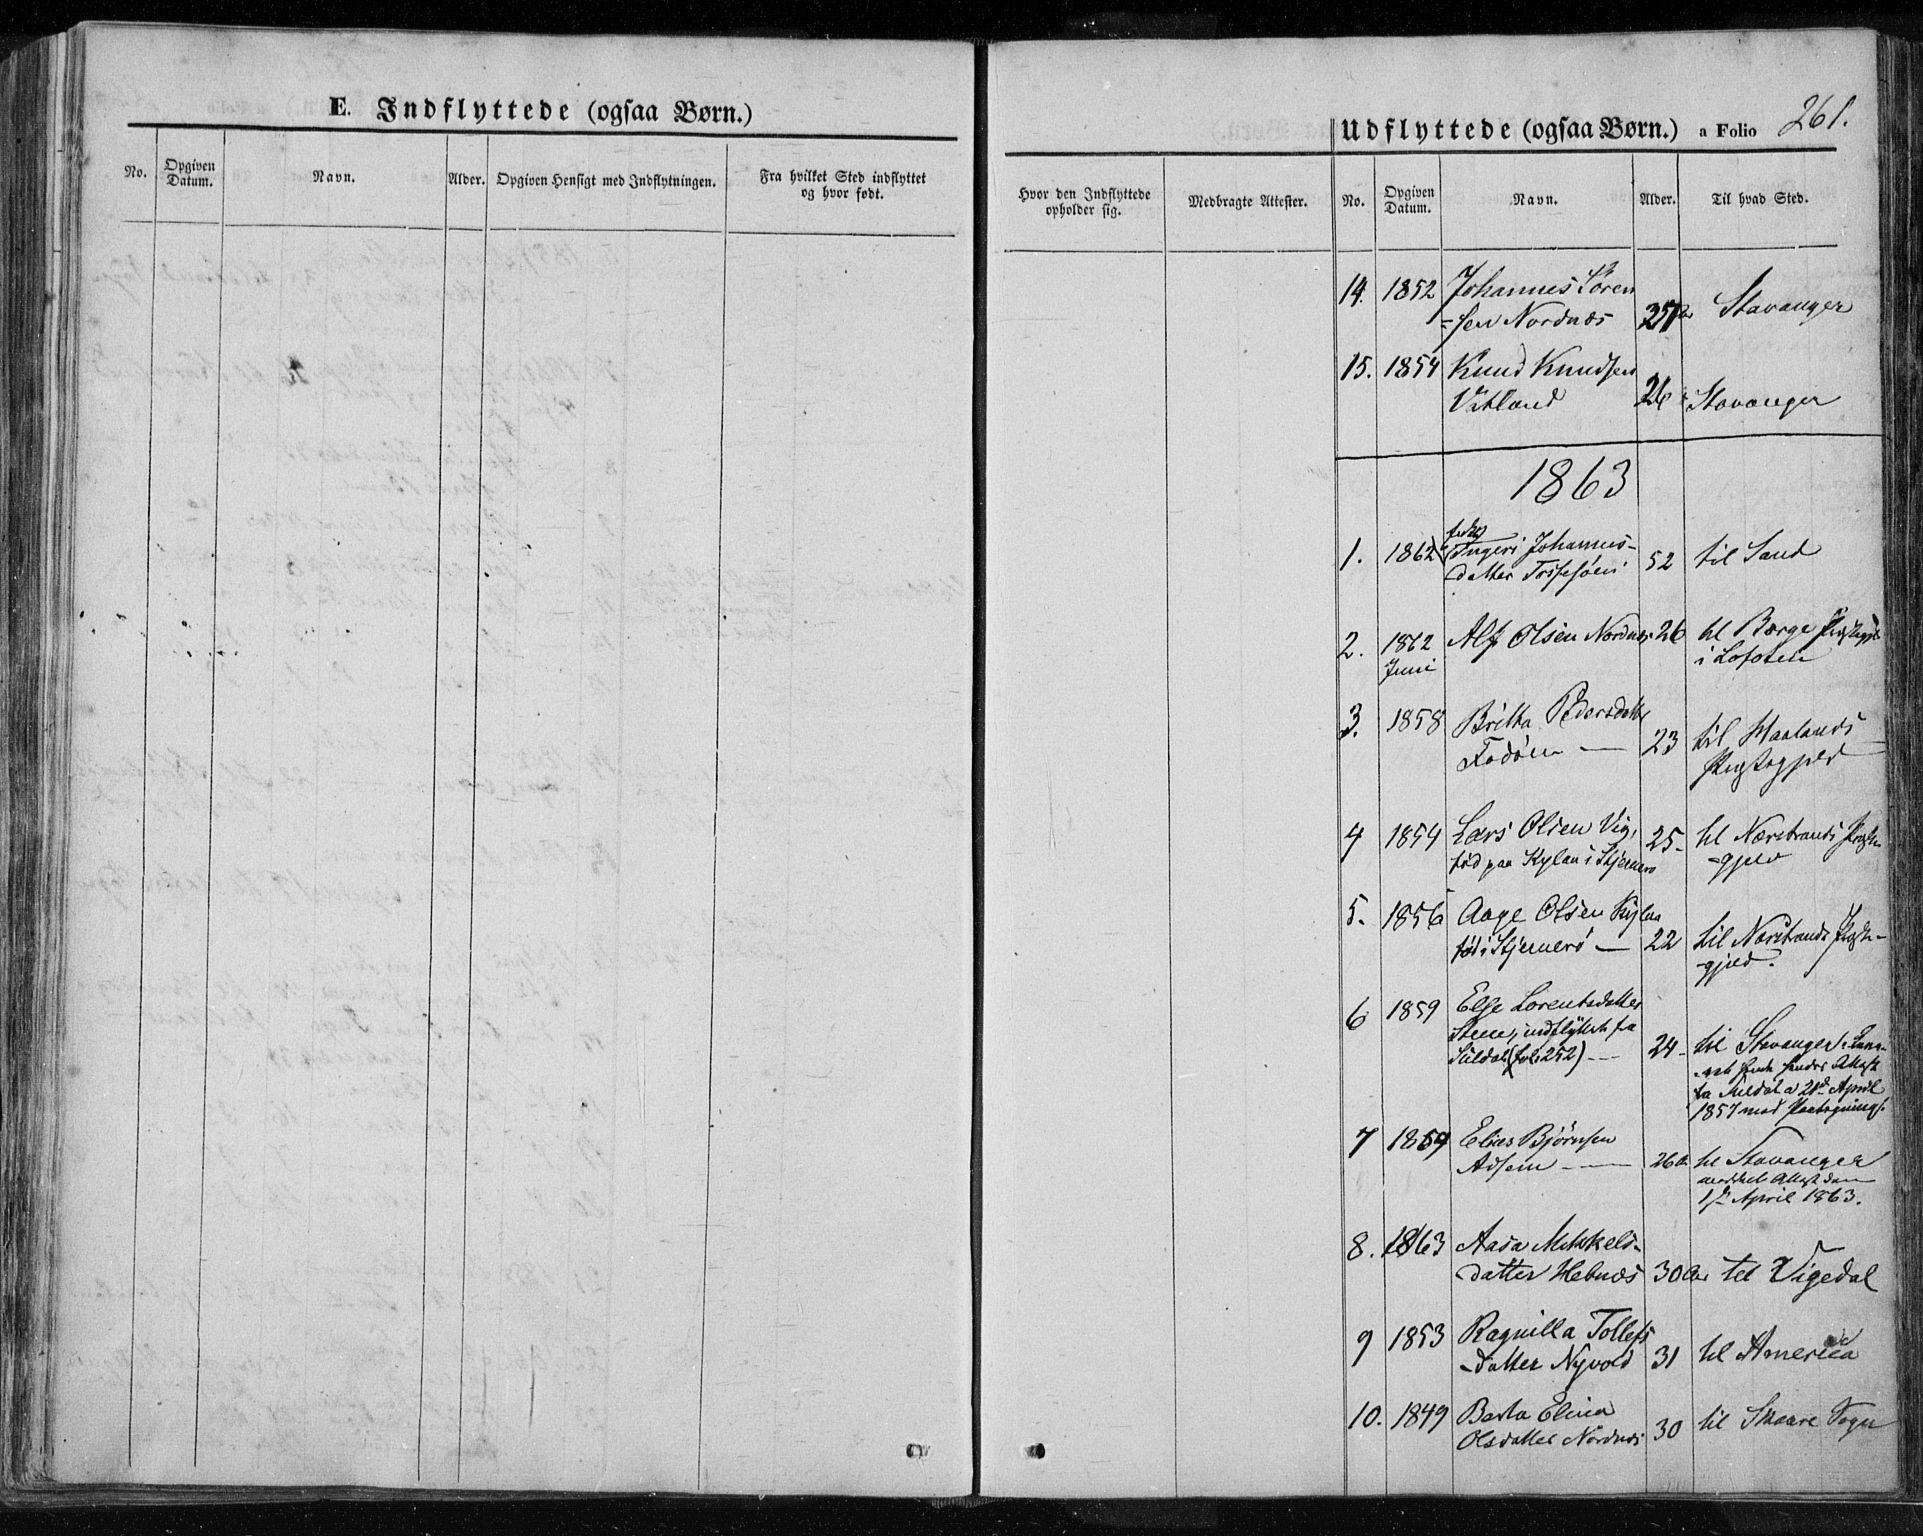 E. Indflyttede (ogsaa Børn.)
No.
Opgiven
Datum.
Navn.
Alder.
Opgiven Hensigt med Indflytningen.
Fra hvilket Sted indflyttet
og hvor født.
Udflyttede (ogsaa Børn.) a Folio 261.
Hvor den Indflyttede
opholder sig.
Medbragte Attester.
No.
Opgiven
Datum.
Navn.
Alder.
Til hvad Sted.
14. 1852 Johannes Sören
=sen Nordnæs Stavanger
15. 1854 Knud Knudsen
Vatland 26 Stavanger
1863
1. 1862 Ingeri Johannes-
datter 52 til Sand
2. 1862 Alf Olsen Nordnæs 26 til Borge
Juni i Lofoten
3. 1858 Britta Pedersdatter
Fodöen — 23 til Haalands
Præstegjeld
4 1854 Lars Olsen Vig,
född paa Kylan i Stjernerö 25- til Nærstrands Præste-
-gjeld
5. 1856 Aage Olsen Kylan
föd i Stjernerö — 22 til Nærstrands Præste-
-gjeld.
6 1859 Else Lorentsdatter
Steen, indflyttet fra
Suldal (fol: 252) — 24- til Stavanger,
Attest
fra Suldal a 21de April
1857 med Paategning.
7 1859 Elias Björnsen
— 26 til Stavanger
meddelt Attest den
1ste April 1863.
8. 1863 Aasa Mikkels-
datter Hebnæs 30 Aar til Vigedal
9 1853 Ragnilla Tollefs
-datter Nyvold 31 til America
10. 1849 Berta Elina
Olsdatter Nordnæs 30 til Skaare Sogn